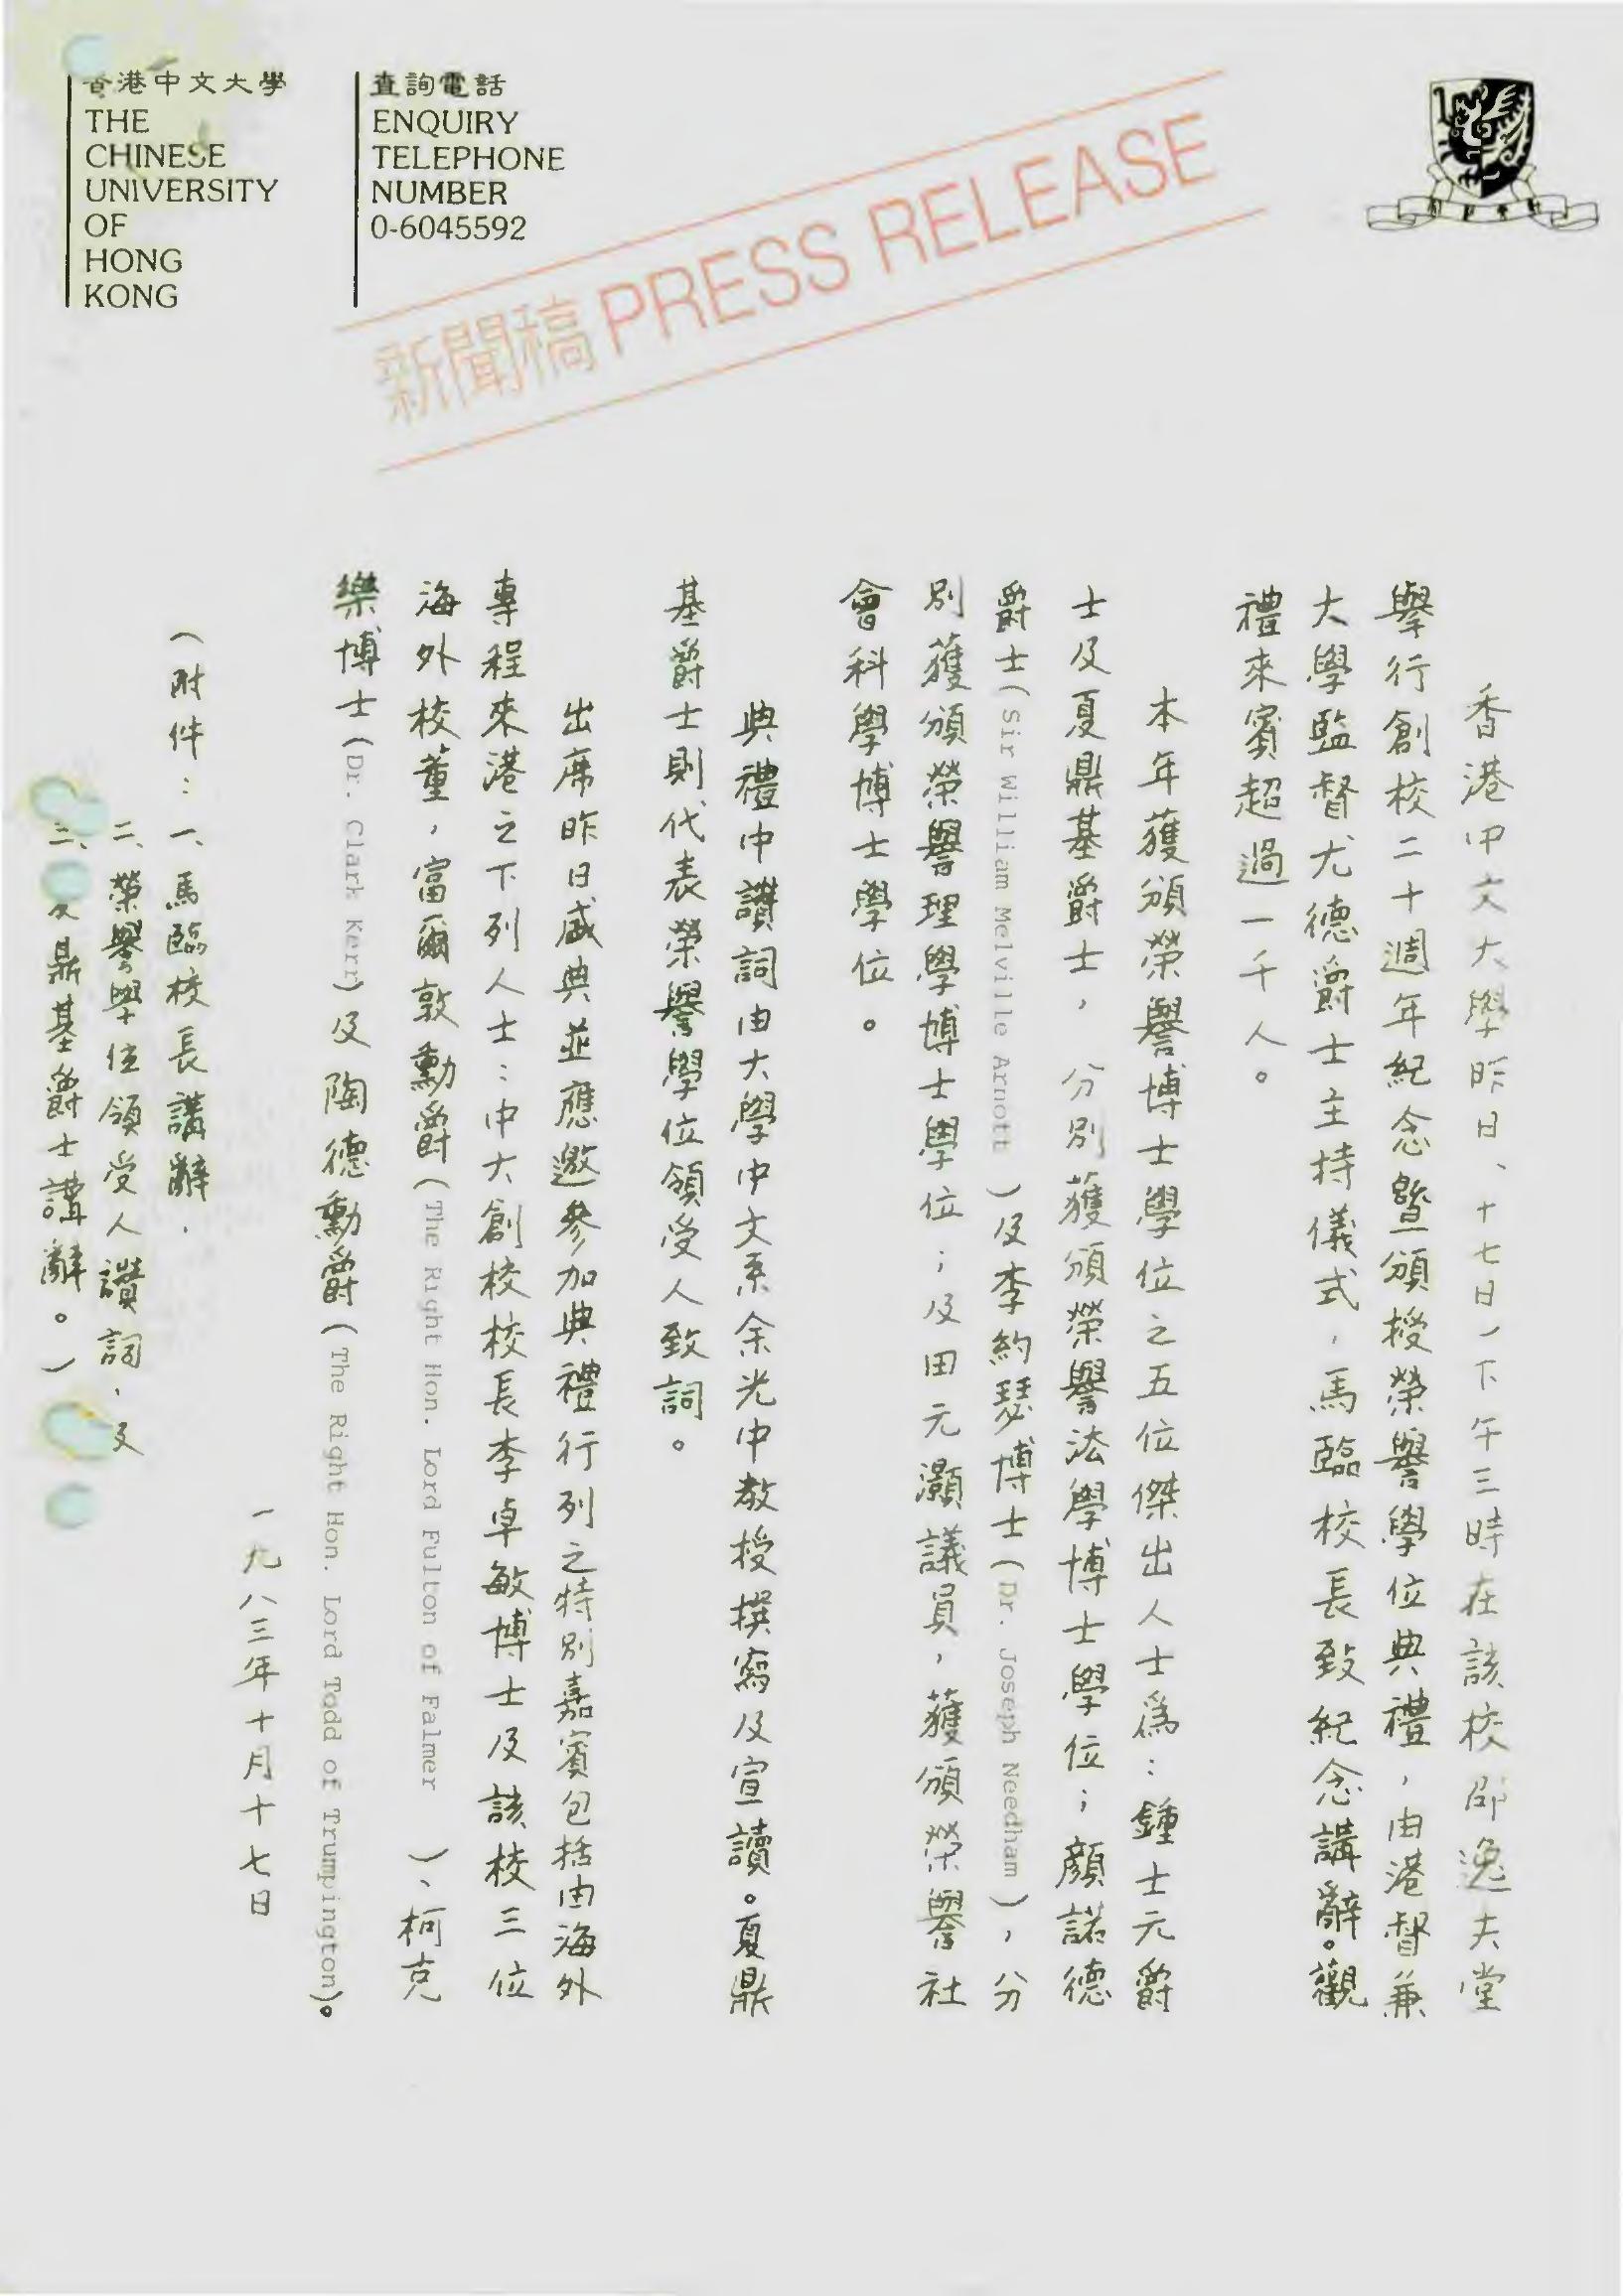 香港中文大學
THE
CHINESE
UNIVERSITY
OF
HONG
KONG
查詢電話
ENQUIRY
TELEPHONE
NUMBER
0-6045592
新聞稿 PRESS RELEASE
香港中文大學昨日(十七日)下午三時在該校邵逸夫堂
舉行創校二十週年紀念暨頒授榮譽學位典禮,由港督兼
大學監督尤德爵士主持儀式,馬臨校長致紀念講辭。觀
禮來賓超過一千人。
本年獲頒榮譽博士學位之五位傑出人士為:鍾士元爵
士及夏鼎基爵士,分別獲頒榮譽法學博士學位;顏諾德
爵士(Sir William Melville Arnott)及李約瑟博士(Dr. Joseph Needham),分
別獲頒榮譽理學博士學位;及田元灝議員,獲頒榮譽社
會科學博士學位。
典禮中讚詞由大學中文系余光中教授撰寫及宣讀。夏鼎
基爵士則代表榮譽學位領受人致詞。
出席昨日盛典並應邀參加典禮行列之特別嘉賓包括由海外
專程來港之下列人士:中大創校校長李卓敏博士及該校三位
海外校董,富爾敦勳爵(The Right Hon. Lord Fulton of Falmer)、柯克
樂博士(Dr. Clark Kerr)及陶德勳爵(The Right Hon. Lord Todd of Trumpington)。
一九八三年十月十七日
(附件:一、馬臨校長講辭.
二、榮譽學位領受人讚詞.及
三、鼎基爵士講辭。)